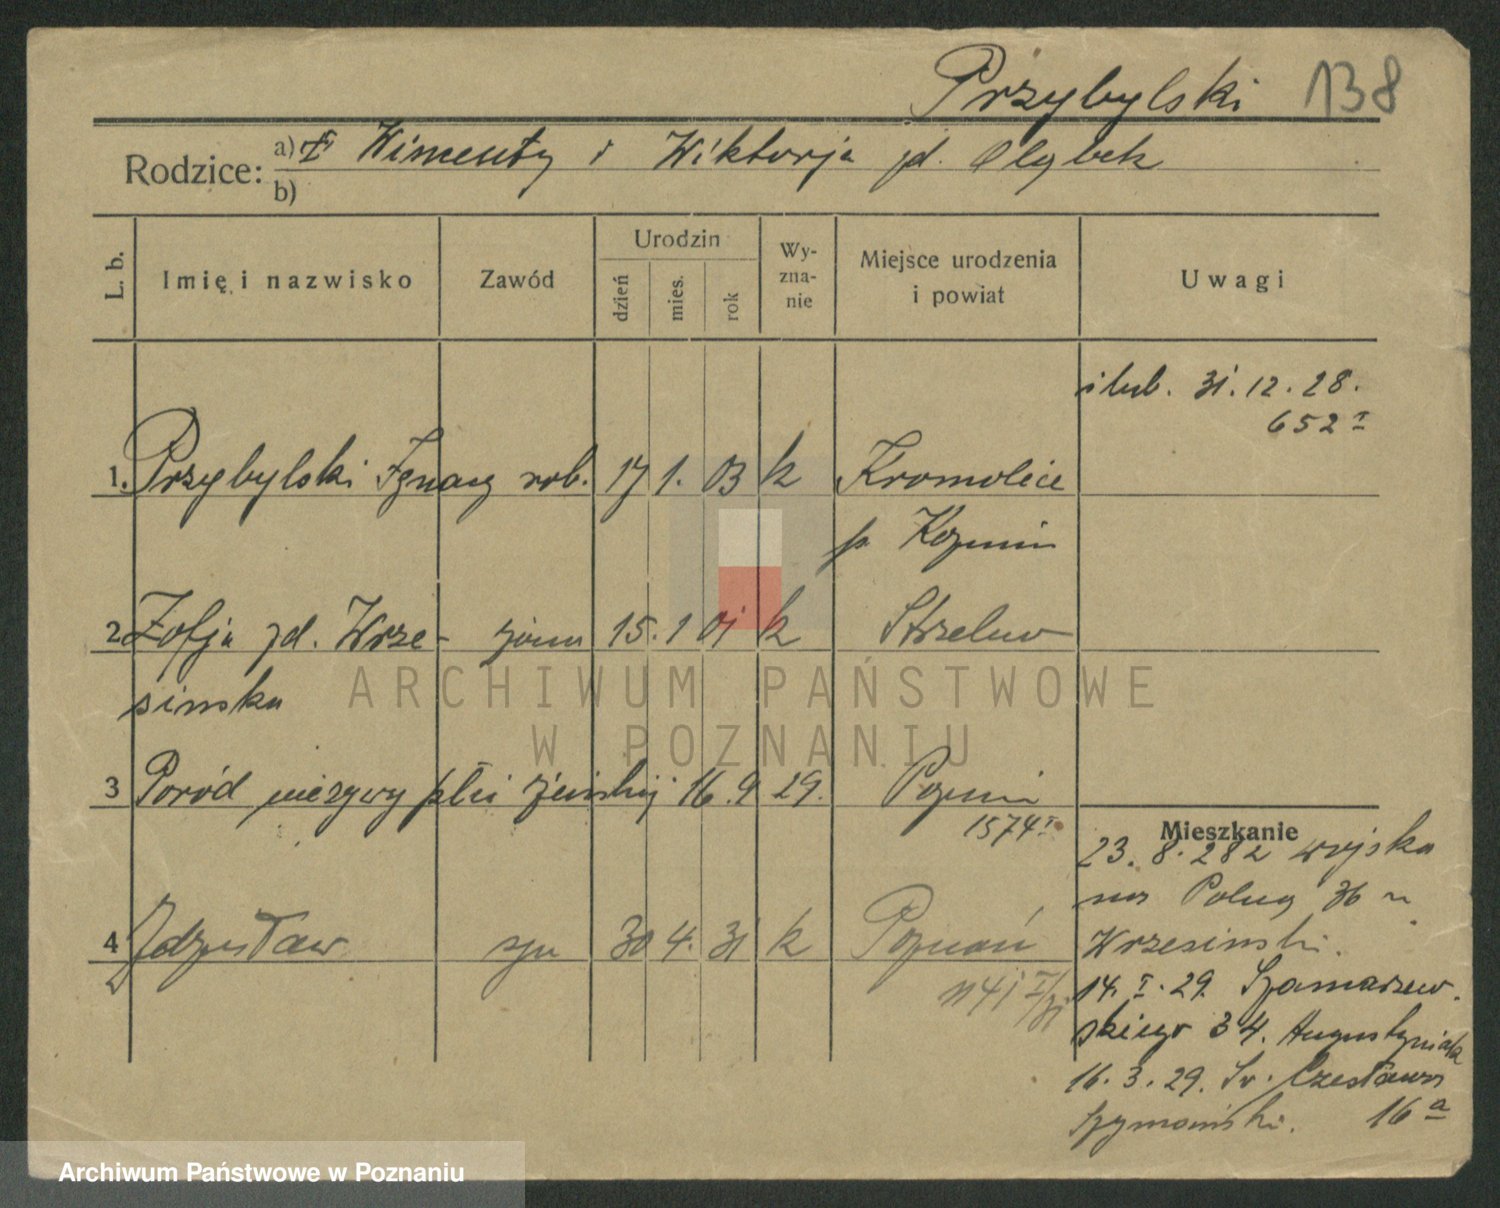 Przybylski 138
Rodzice: a) Wincenty i Wiktorja zd. Olybek
b)
L. b. Imię i nazwisko Zawód Urodzin dzień mies. rok Wyznanie Miejsce urodzenia i powiat Uwagi
ślub. 31.12.28.
652 I
1. Przybylski Ignacy rob. 17 1. 03 k Kromolice
p. Kozmin
2 Zofja zd. Wrze- żona 15. 1 01 k Strzelno
sinska
3 Poród nieżywy płci żeńskiej 16. 9 29. Poznań
1574 I
4 Zdzisław syn 30 4. 31 k Poznań
1141 I/31
Mieszkanie
23. 8. 28 z wojska
na Polną 36 u
Wrzesinski.
14. I. 29. Szamarzew-
skiego 34. Augustyniak
16. 3. 29. Św. Czesława
Szymański. 16 a
ARCHIWUM PAŃSTWOWE
W POZNANIU
Archiwum Państwowe w Poznaniu